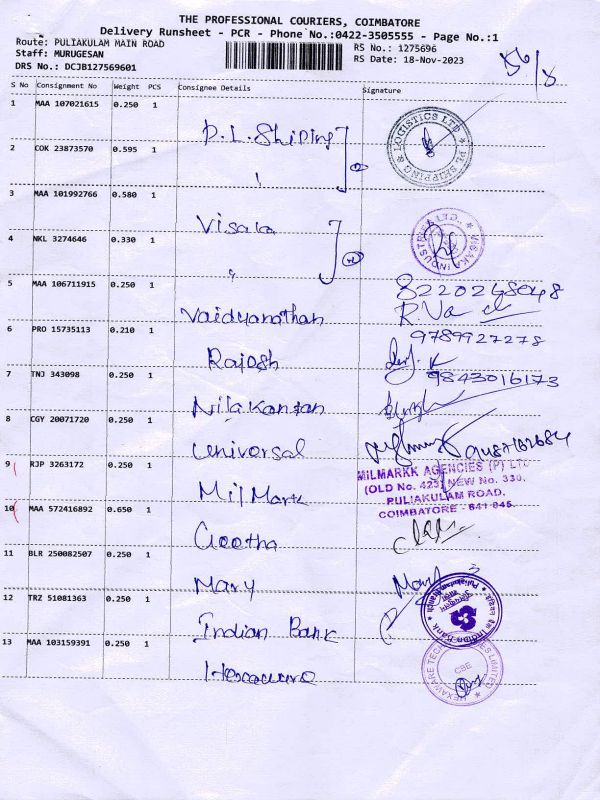 THE PROFESSIONAL COURIERS, COIMBATORE
Delivery Runsheet - PCR - Phone No.:0422-3505555 - Page No.:1
Route: PULIAKULAM MAIN ROAD
Staff: MURUGESAN
DRS No.: DCJB127569601
RS No.: 1275696
RS Date: 18-Nov-2023
S No Consignment No Weight PCS Consignee Details Signature
1 MAA 107021615 0.250 1
P.L. Shiping
LOGISTICS LTD * PL SHIPPING &
2 COK 23873570 0.595 1
3 MAA 101992766 0.580 1
Visala
VISAKA INDUSTRIES LTD.,
4 NKL 3274646 0.330 1
5 MAA 106711915 0.250 1
8220248048
Vaidyanathan
6 PRO 15735113 0.210 1
9789927278
Rajesh
7 TNJ 343098 0.250 1
9843016173
Nilakantan
8 CGY 20071720 0.250 1
Universal
9 RJP 3263172 0.250 1
MILMARKK AGENCIES (P) LTD
(OLD No. 423) NEW No. 330,
PULIAKULAM ROAD,
COIMBATORE - 641 045.
Mil Mark
10 MAA 572416892 0.650 1
Geetha
11 BLR 250082507 0.250 1
Mary
Mary
12 TRZ 51081363 0.250 1
Indian Bank
Indian Bank
13 MAA 103159391 0.250 1
Hexaware
HEXAWARE TECHNOLOGIES LIMITED
CBE